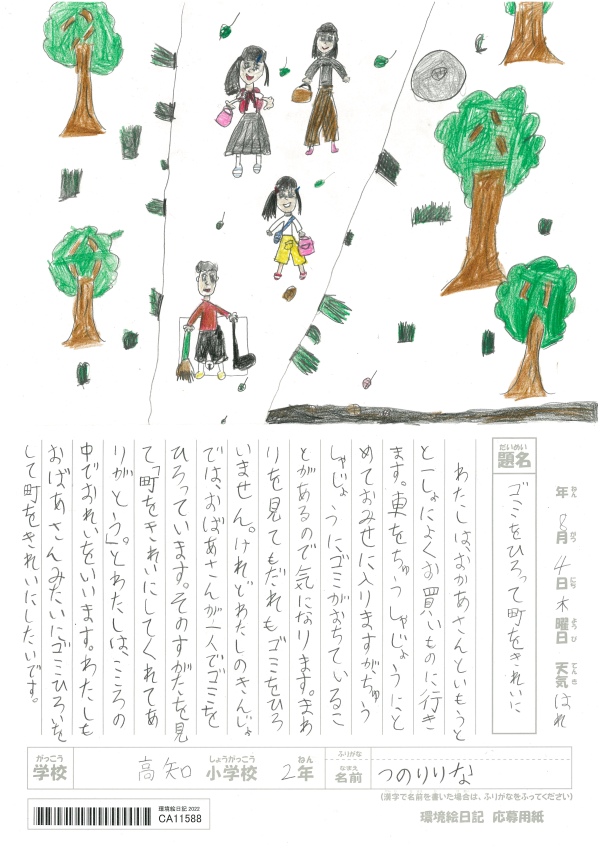 年 8月 4日 木曜日 天気 はれ
ねん がつ にち ようび てんき
だいめい
題名
ゴミをひろって町をきれいに
わたしは、おかあさんといもうと
と一しょによくお買いものに行き
ます。車をちゅうしゃじょうにと
めておみせに入りますがちゅう
しゃじょうにゴミがおちているこ
とがあるので気になります。まわ
りを見てもだれもゴミをひろ
いません。けれどわたしのきんじょ
では、おばあさんが一人でゴミを
ひろっています。そのすがたを見
て「町をきれいにしてくれてあ
りがとう」。とわたしは、こころの
中でおれいをいいます。わたしも
おばあさんみたいにゴミひろいを
して町をきれいにしたいです。
がっこう しょうがっこう ねん ふりがな
学校 高知 小学校 2年 なまえ 名前 つのりりな
(漢字で名前を書いた場合は、ふりがなをふってください)
環境絵日記 応募用紙
環境絵日記 2022
CA11588